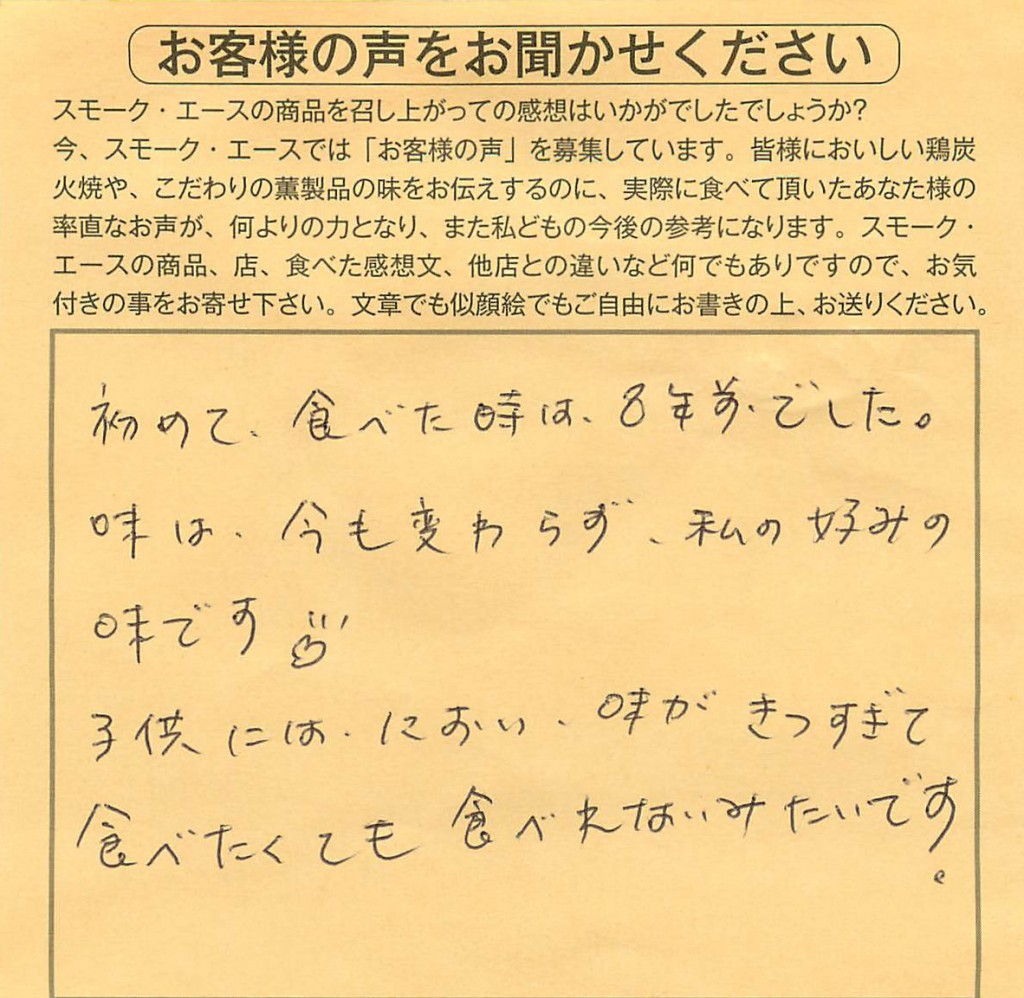 お客様の声をお聞かせください
スモーク・エースの商品を召し上がっての感想はいかがでしたでしょうか?
今、スモーク・エースでは「お客様の声」を募集しています。皆様においしい鶏炭
火焼や、こだわりの薫製品の味をお伝えするのに、実際に食べて頂いたあなた様の
率直なお声が、何よりの力となり、また私どもの今後の参考になります。スモーク・
エースの商品、店、食べた感想文、他店との違いなど何でもありですので、お気
付きの事をお寄せ下さい。文章でも似顔絵でもご自由にお書きの上、お送りください。
初めて、食べた時は、8年前でした。
味は、今も変わらず、私の好みの
味です
子供には、におい、味がきつすぎて
食べたくても食べれないみたいです。